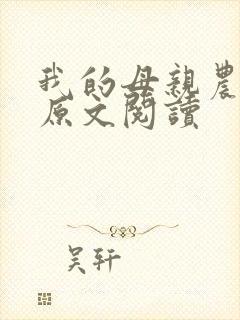 我的母親農
原文閱讀
吴轩